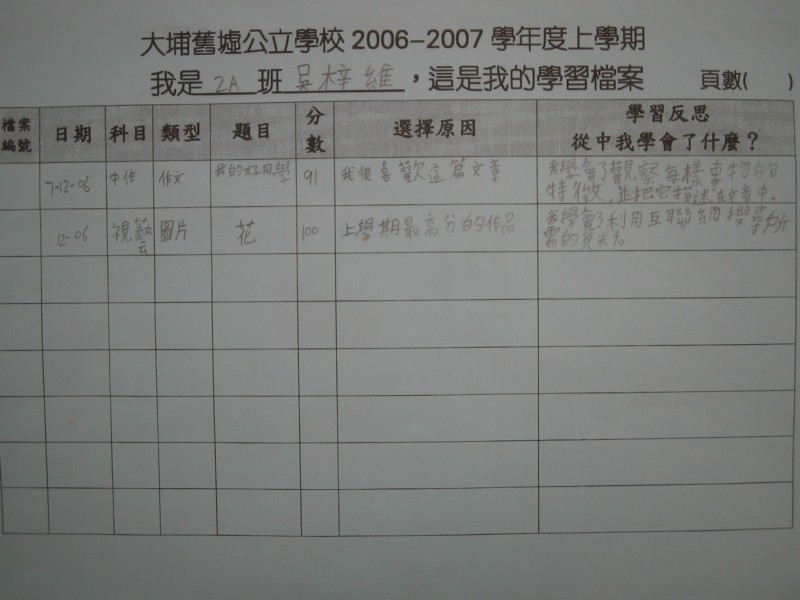 大埔舊墟公立學校 2006-2007 學年度上學期
我是 2A 班 吳梓維 ，這是我的學習檔案 頁數( )
檔案編號 日期 科目 類型 題目 分數 選擇原因 學習反思 從中我學會了什麼？
7-12-06 中作 作文 我的好同學 91 我很喜歡這篇文章 我學會了觀察每樣事物的
特徵,並把它描述在文章中。
12-06 視藝 圖片 花 100 上學期最高分的作品 我學會了利用互聯網搜尋所
需的資料。